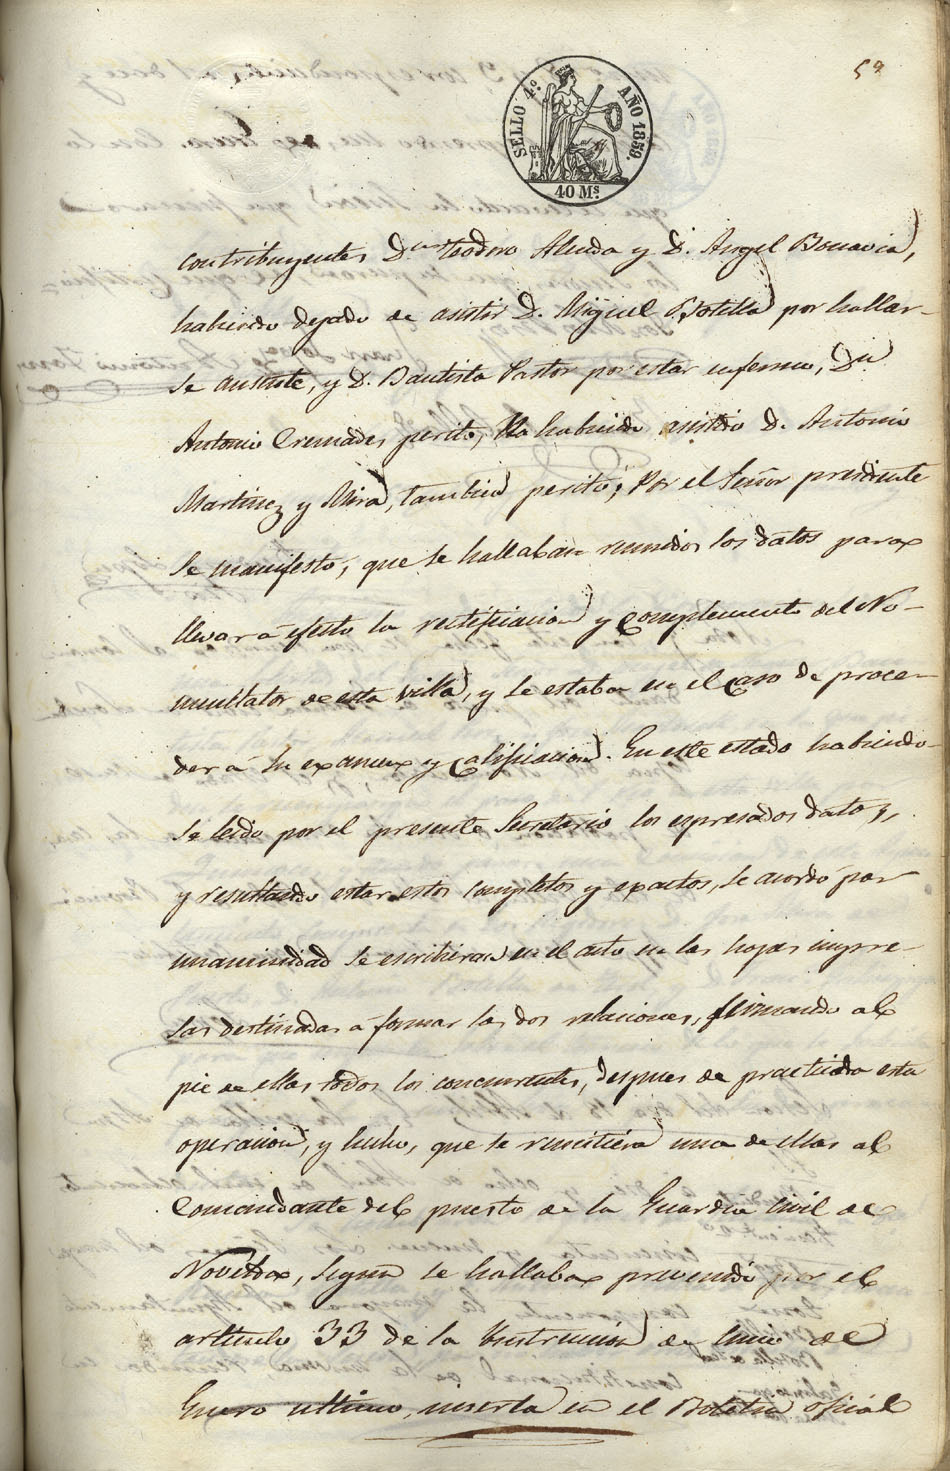 59
SELLO 4º. AÑO 1859.
40 Ms
contribuyentes Dn Teodoro Alenda y D. Angel Bonavia,
habiendo dejado de asistir D. Miguel Botella por hallar-
se ausente, y D. Bautista Pastor por estar enfermo, Dn
Antonio Cremades perito, habiendo asistido D. Antonio
Martinez y Mira, tambien perito; Por el Señor presidente
se manifesto, que se hallaban reunidos los datos para
llevar á efecto la rectificacion y complemento del No-
menclator de esta villa, y se estaba en el caso de proce-
der á su examen y calificacion. En este estado habiendo-
se leido por el presente Secretario los espresados datos,
y resultando estar estos completos y exactos, se acordó por
unanimidad se escribieran en el acto en las hojas impre-
sas destinadas á formar las dos relaciones, firmando al
pie de ellas todos los concurrentes, despues de practicada esta
operacion, y hecho, que se remitiera una de ellas al
Comandante del puesto de la Guardia Civil de
Novelda, segun se hallaba prevenido por el
articulo 33 de la Instruccion de cinco de
Enero ultimo, inserta en el Boletin oficial